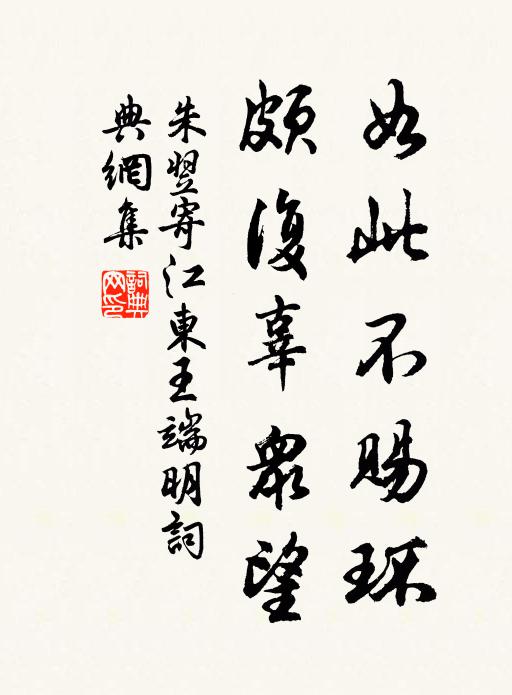 如此不賜環
頗復辜眾望
朱翌寄江東王端明詞
典網集
詞典網印